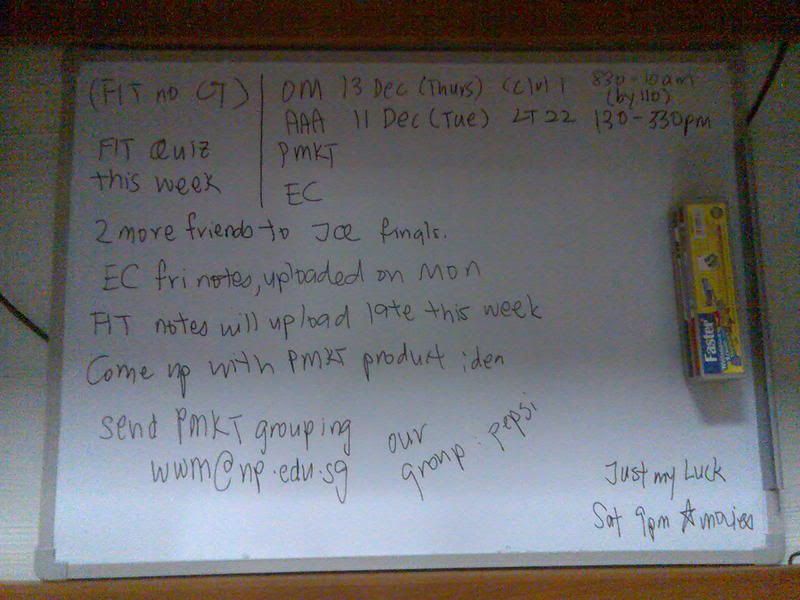 (FIT no CT)
FIT Quiz
this week
OM 13 Dec (Thurs) 830-10am
(by 110)
AAA 11 Dec (Tue) LT 22 130-330pm
PMKT
EC
2 more friends to Joe finals.
EC fri notes, uploaded on mon
FIT notes will upload late this week
Come up with PMKT product idea
send PMKT grouping
wwm@np.edu.sg
our
group : pepsi
Just my Luck
Sat 9pm ☆ movies
Faster